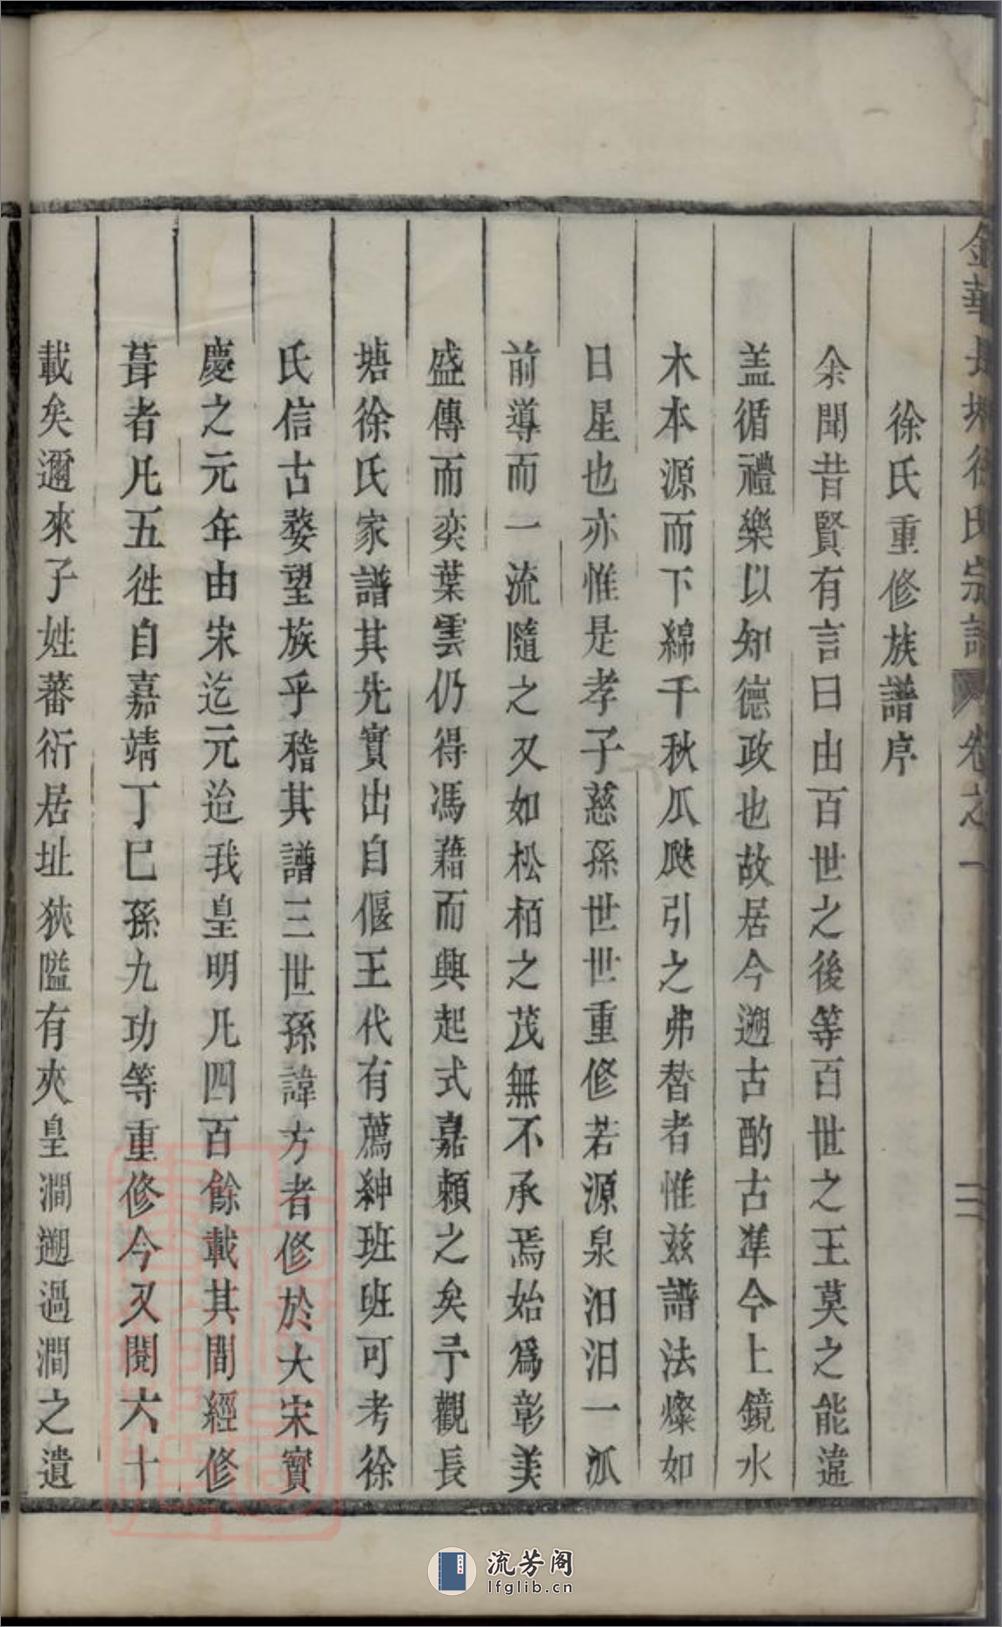 金華長塘徐氏宗譜 卷之一 三
徐氏重修族譜序
余聞昔賢有言曰由百世之後等百世之王莫之能違
盖循禮樂以知德政也故居今遡古酌古凖今上鏡水
木本源而下綿千秋瓜瓞引之弗替者惟兹譜法燦如
日星也亦惟是孝子慈孫世世重修若源泉汨汨一泒
前導而一流隨之又如松栢之茂無不承焉始爲彰美
盛傳而奕葉雲仍得馮藉而興起式嘉頼之矣予觀長
塘徐氏家譜其先實出自偃王代有薦紳班班可考徐
氏信古婺望族乎稽其譜三世孫諱方者修於大宋寳
慶之元年由宋迄元迨我皇明凡四百餘載其間經修
葺者凡五徃自嘉靖丁巳孫九功等重修今又閱六十
載矣邇來子姓蕃衍居址狹隘有夾皇澗遡過澗之遺
流芳阁
lfglib.cn